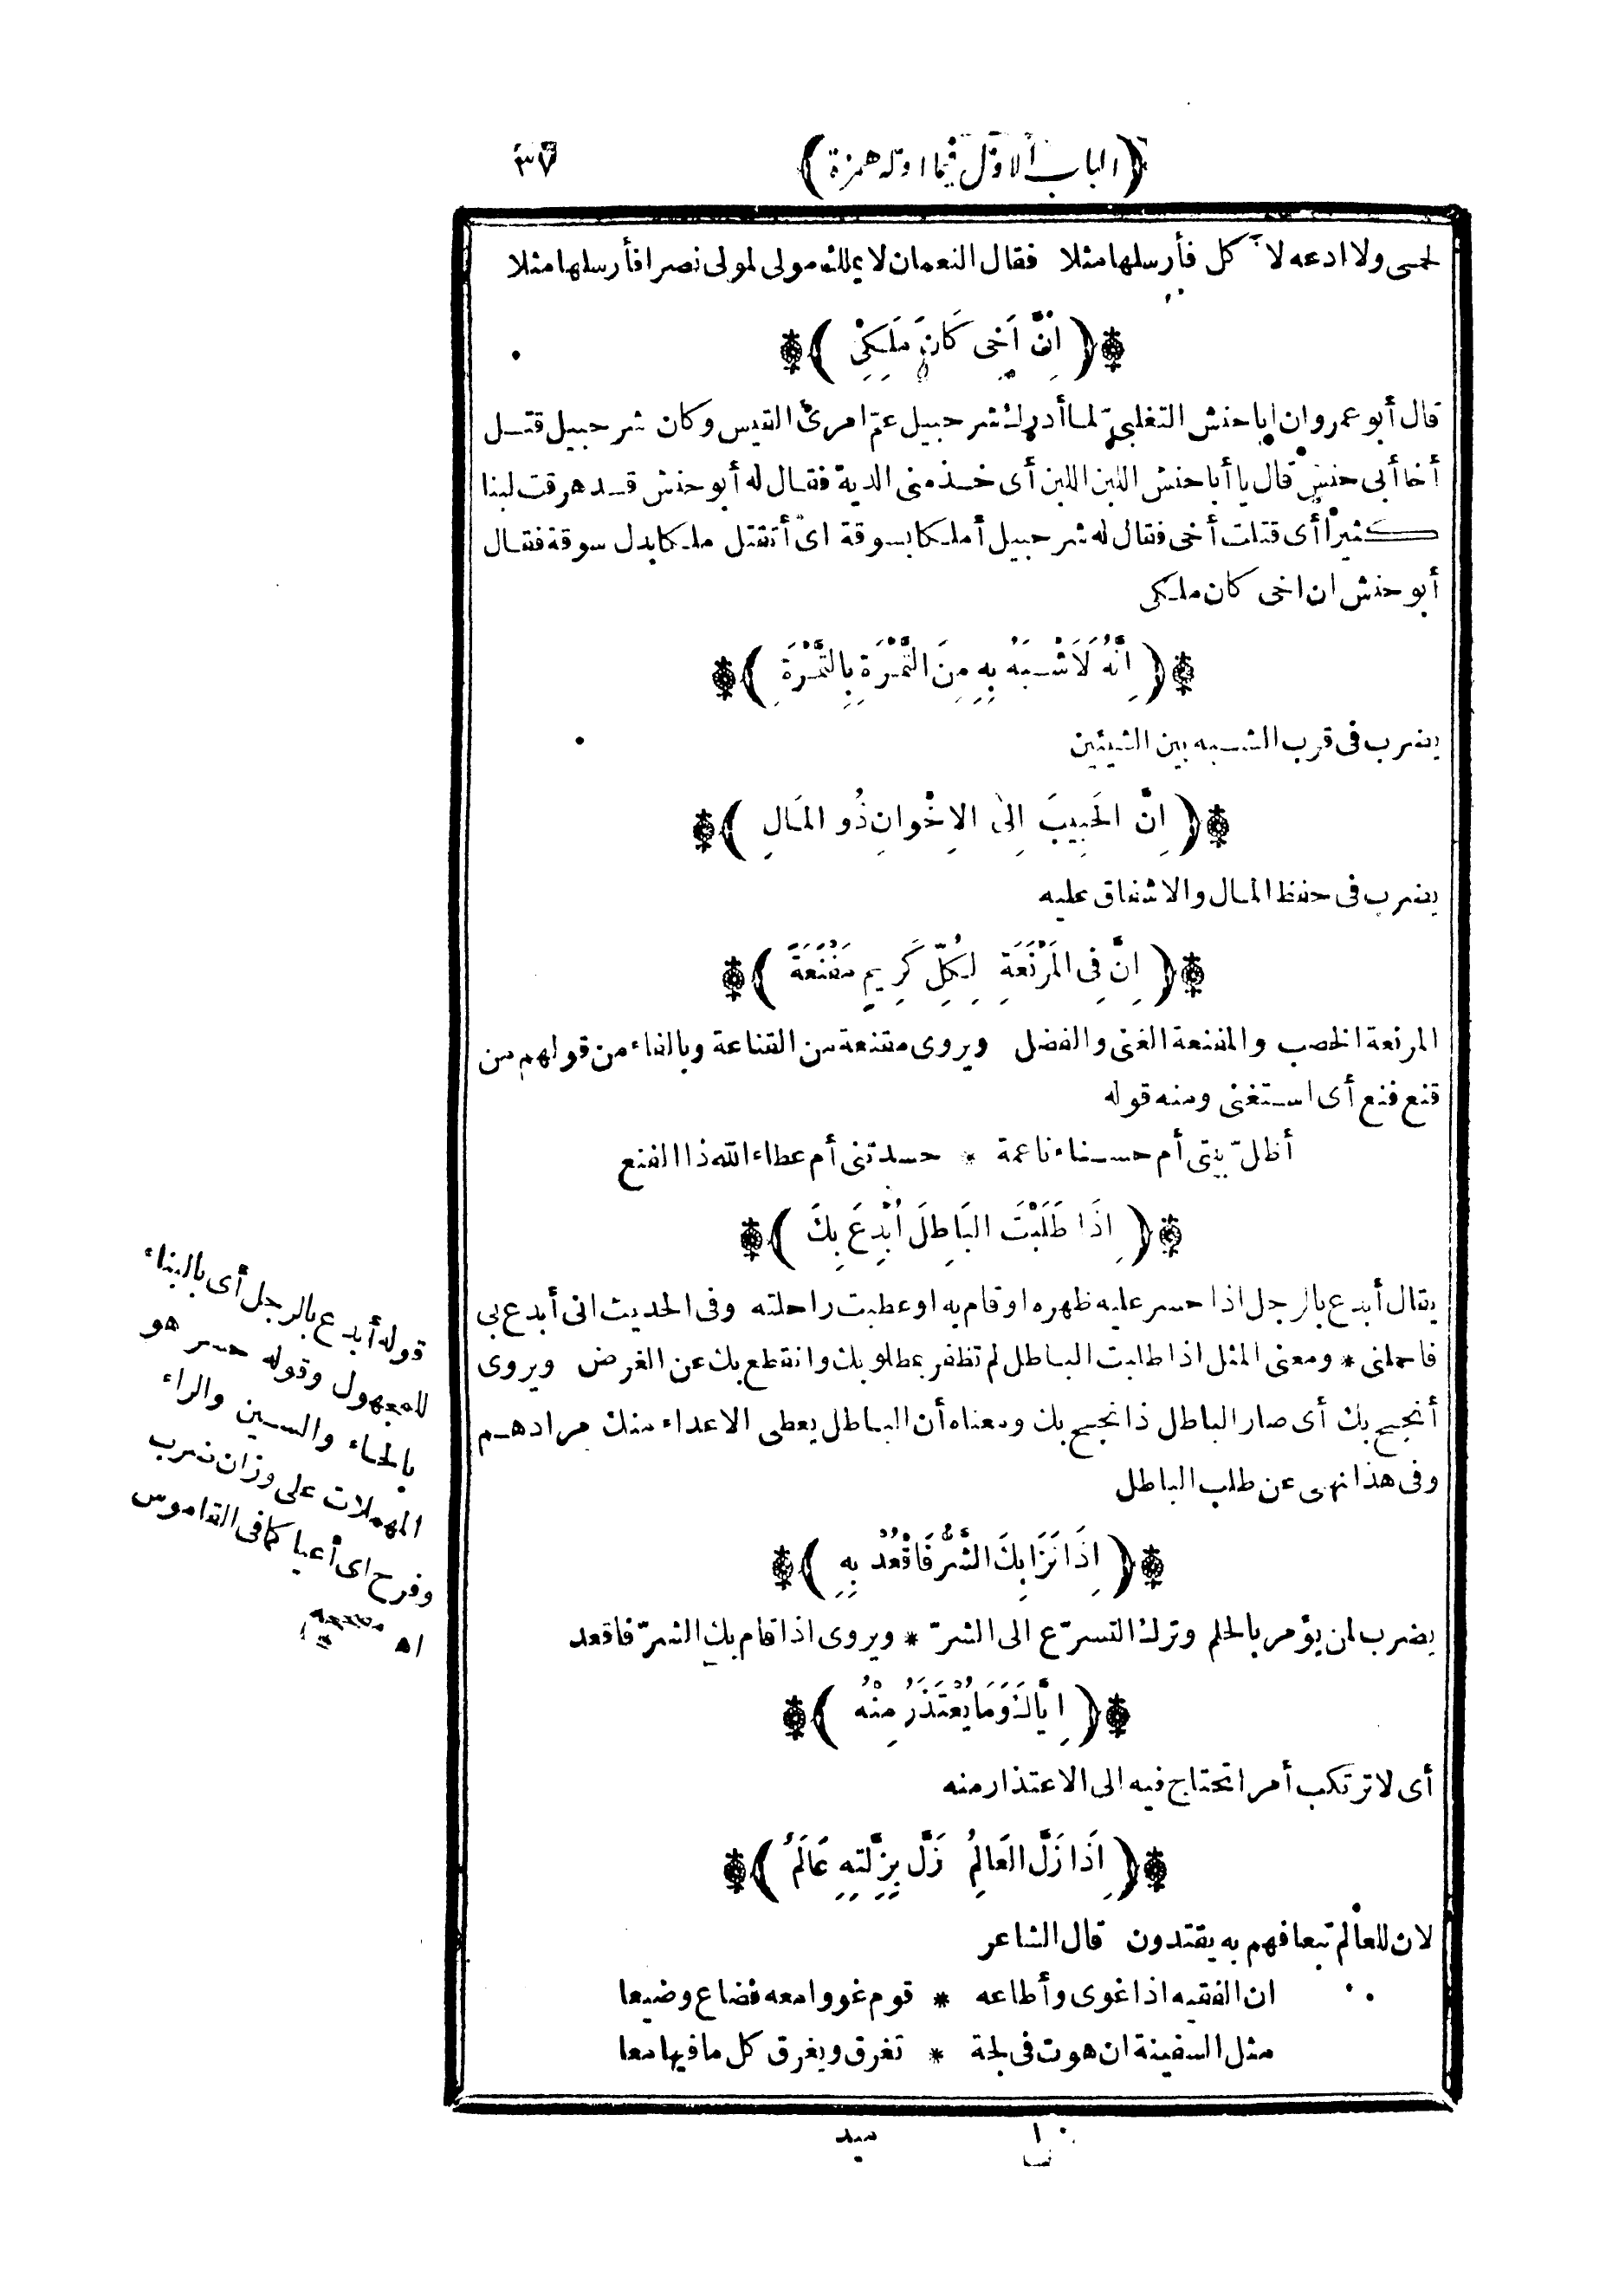 (الباب الاوّل فيما اوّله همزة)
٣٧
لحمى ولا ادعه لآكل فأرسلها مثلا فقال النعمان لا يملك مولى لمولى نصرا فأرسلها مثلا
(اِنَّ اَخِى كَانَ مَلِكِى)
قال أبو عمرو ان ابا حنش التغلبىّ لما أدرك شرحبيل عمّ امرئ القيس وكان شرحبيل قتل
أخا أبى حنش قال يا أبا حنش اللبن اللبن أى خذ منى الدية فقال له أبو حنش قد هرقت لبنا
كثيرا أى قتلت أخى فقال له شرحبيل أملكا بسوقة اى أتقتل ملكا بدل سوقة فقال
أبو حنش ان اخى كان ملكى
(اِنَّهُ لَاَشْبَهُ بِهِ مِنَ التَّمْرَةِ بِالتَّمْرَةِ)
يضرب فى قرب الشبه بين الشيئين
(اِنَّ الحَبِيبَ اِلَى الاِخْوانِ ذُو المَالِ)
يضرب فى حفظ المال والاشفاق عليه
(اِنَّ فِى المَرْتَعَةِ لِكُلِّ كَرِيمٍ مَفْنَعَةً)
المرتعة الخصب والمفنعة الغنى والفضل ويروى مقنعة من القناعة وبالفاء من قولهم من
قنع فنع أى استغنى ومنه قوله
أظلّ بيتى أم حسناء ناعمة * حسدتنى أم عطاء الله ذا الفنع
(اِذَا طَلَبْتَ البَاطِلَ اُبْدِعَ بِكَ)
يقال أبدع بالرجل اذا حسر عليه ظهره او قام به او عطبت راحلته وفى الحديث انى أبدع بى
فاحملنى * ومعنى المثل اذا طلبت الباطل لم تظفر بمطلوبك وانقطع بك عن الغرض ويروى
أنجح بك أى صار الباطل ذا نجح بك ومعناه أن الباطل يعطى الاعداء منك مرادهم
وفى هذا نهى عن طلب الباطل
(اِذَا نَزَا بِكَ الشَّرُّ فَاقْعُدْ بِهِ)
يضرب لمن يؤمر بالحلم وترك التسرّع الى الشرّ * ويروى اذا قام بك الشرّ فاقعد
(اِيَّاكَ وَمَا يُعْتَذَرُ مِنْهُ)
أى لا ترتكب أمرا تحتاج فيه الى الاعتذار منه
(اِذَا زَلَّ العَالِمُ زَلَّ بِزَلَّتِهِ عَالَمٌ)
لان للعالم تبعا فهم به يقتدون قال الشاعر
ان الفقيه اذا غوى وأطاعه * قوم غووا معه فضاع وضيعا
مثل السفينة ان هوت فى لجة * تغرق ويغرق كل ما فيها معا
قوله أبدع بالرجل أى بالبناء
للمجهول وقوله حسر هو
بالحاء والسين والراء
المهملات على وزان ضرب
وفرح اى أعيا كما فى القاموس
اه مصححه
١
ميد